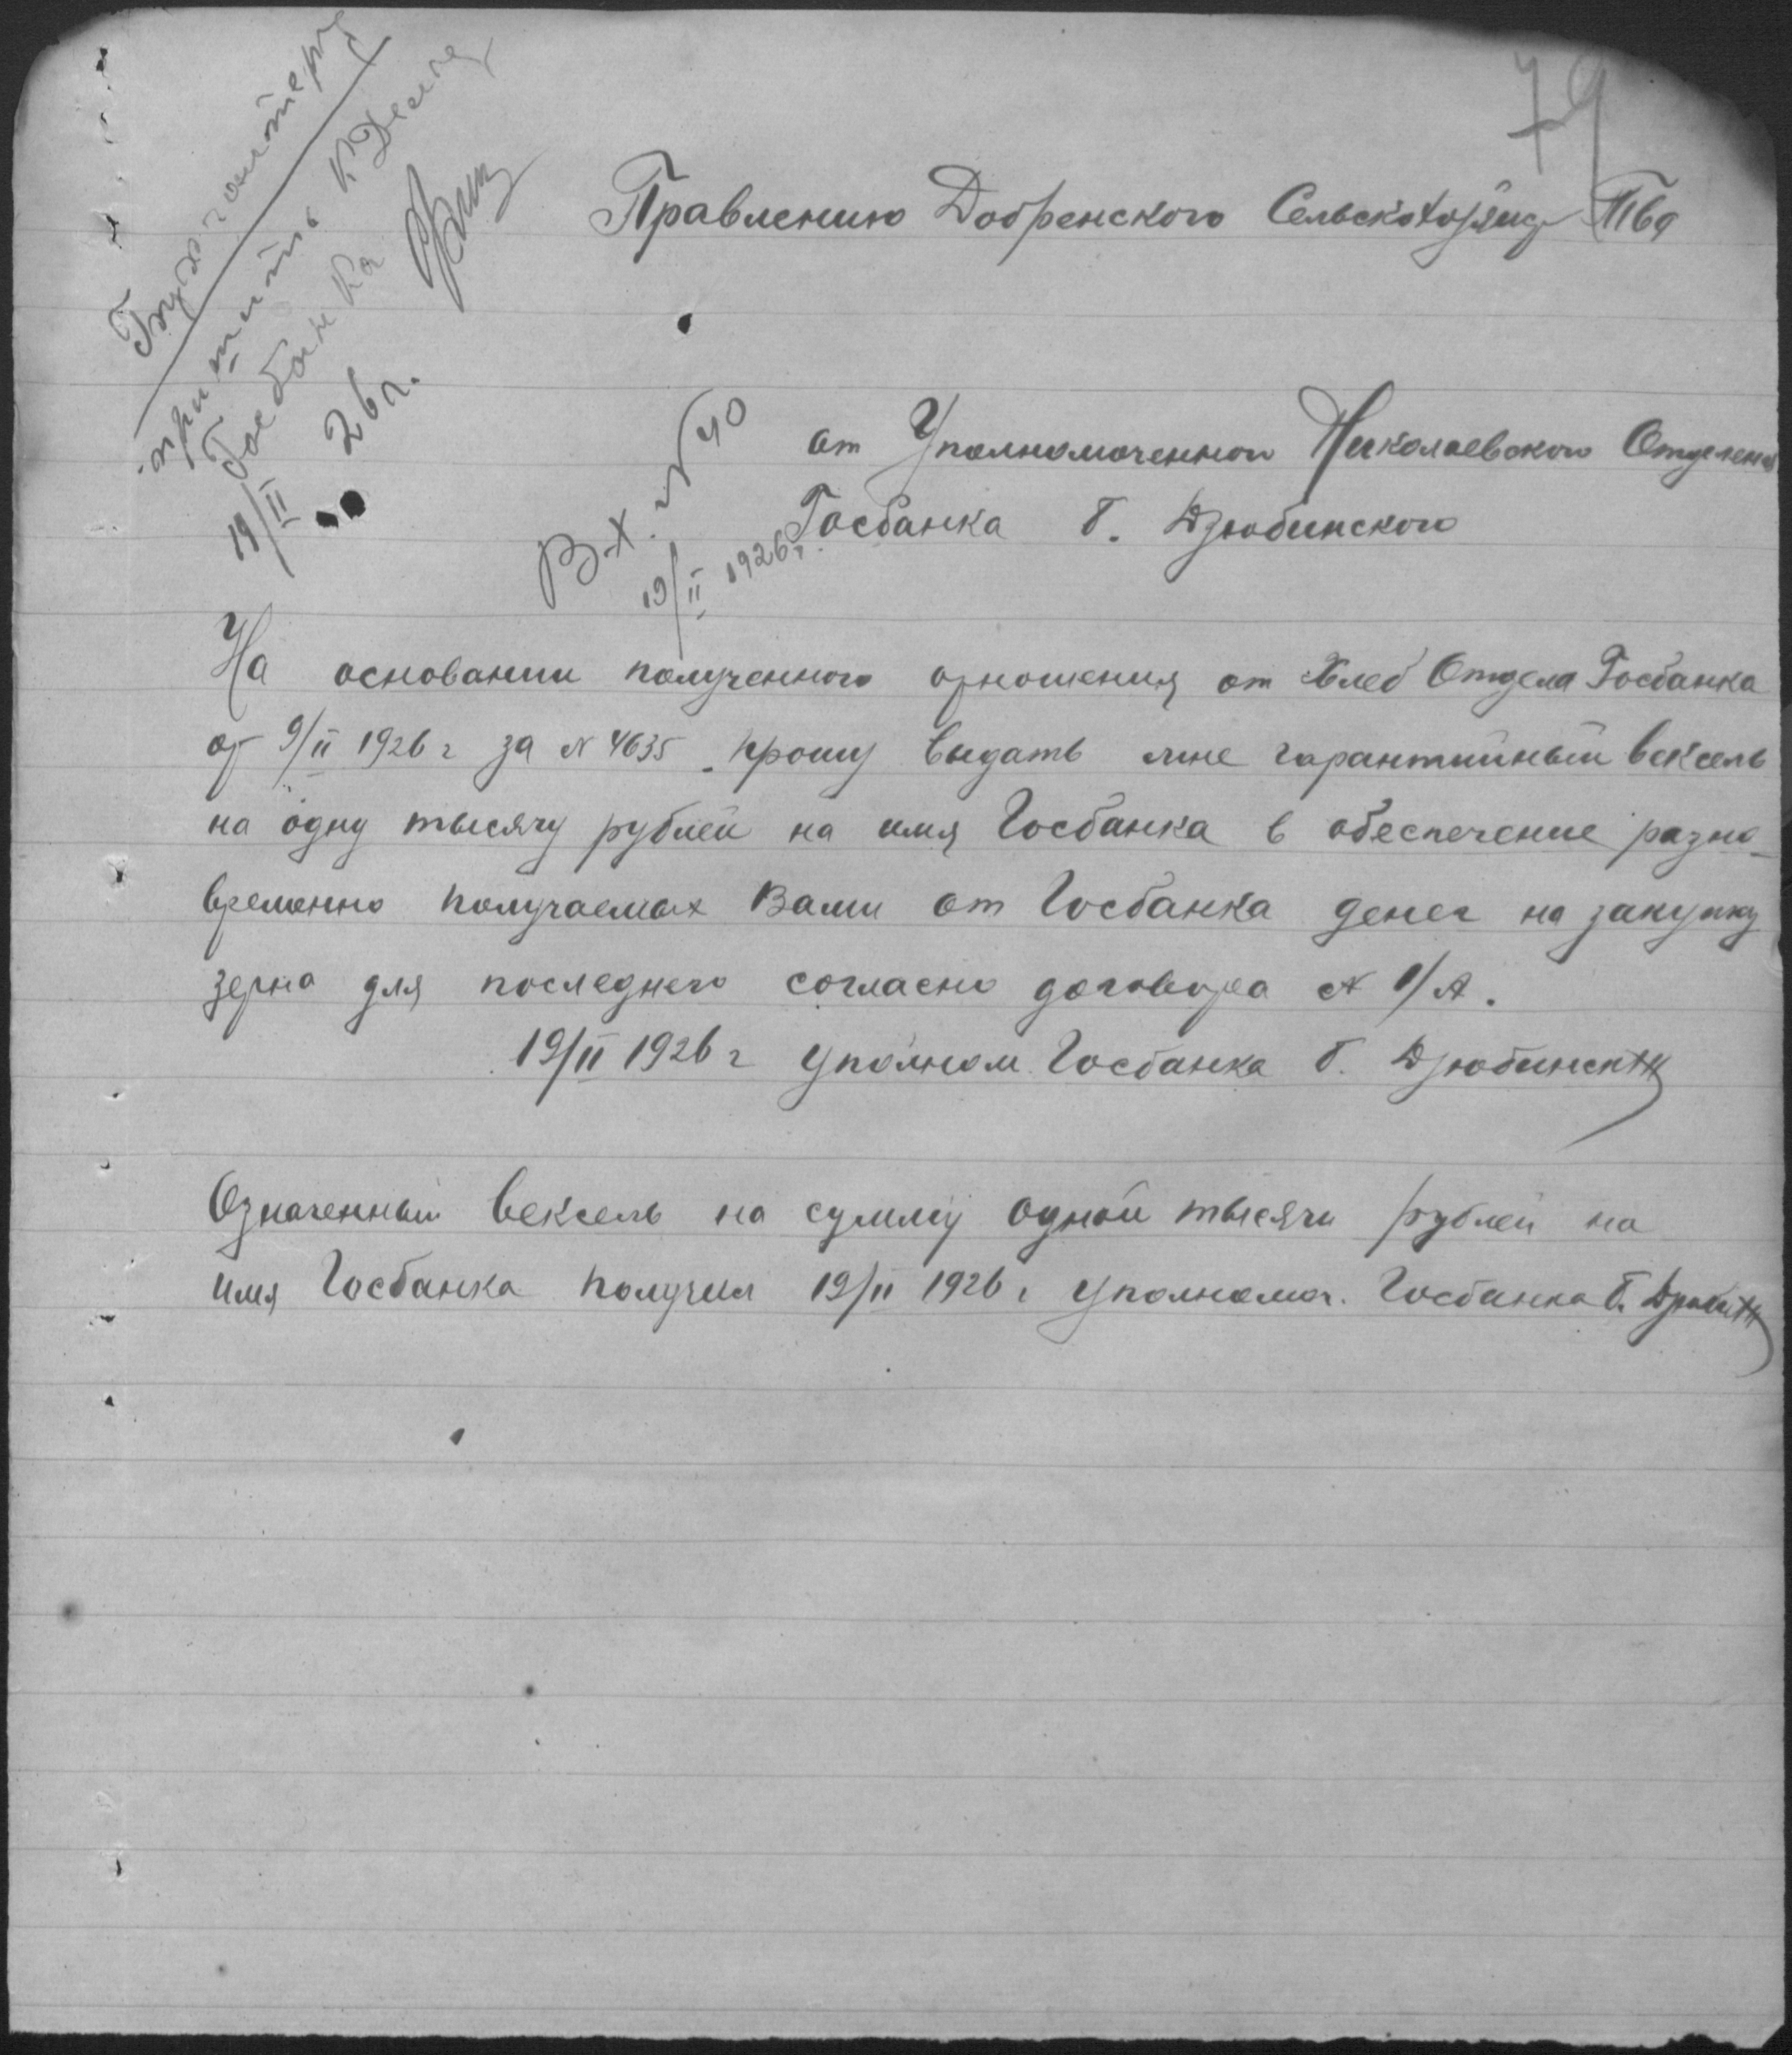 79
Бухгалтеру
пришить к Делу
Госбанка
19/II 26 г.
Правлению Добренского Сельскохозяйс Тва
Вх. № 40
19/II 1926 г.
от Уполномоченного Николаевского Отделения
Госбанка Б. Дзюбинского
На основании полученного отношения от Хлеб Отдела Госбанка
от 9/II 1926 г за № 4635. прошу выдать мне гарантийный вексель
на одну тысячу рублей на имя Госбанка в обеспечение разно-
временно получаемых Вами от Госбанка денег на закупку
зерна для последнего согласно договора № 1/А.
19/II 1926 г Уполном. Госбанка Б. Дзюбинский
Означенный вексель на сумму одной тысячи рублей на
имя Госбанка получил 19/II 1926 г Уполномоч. Госбанка Б.